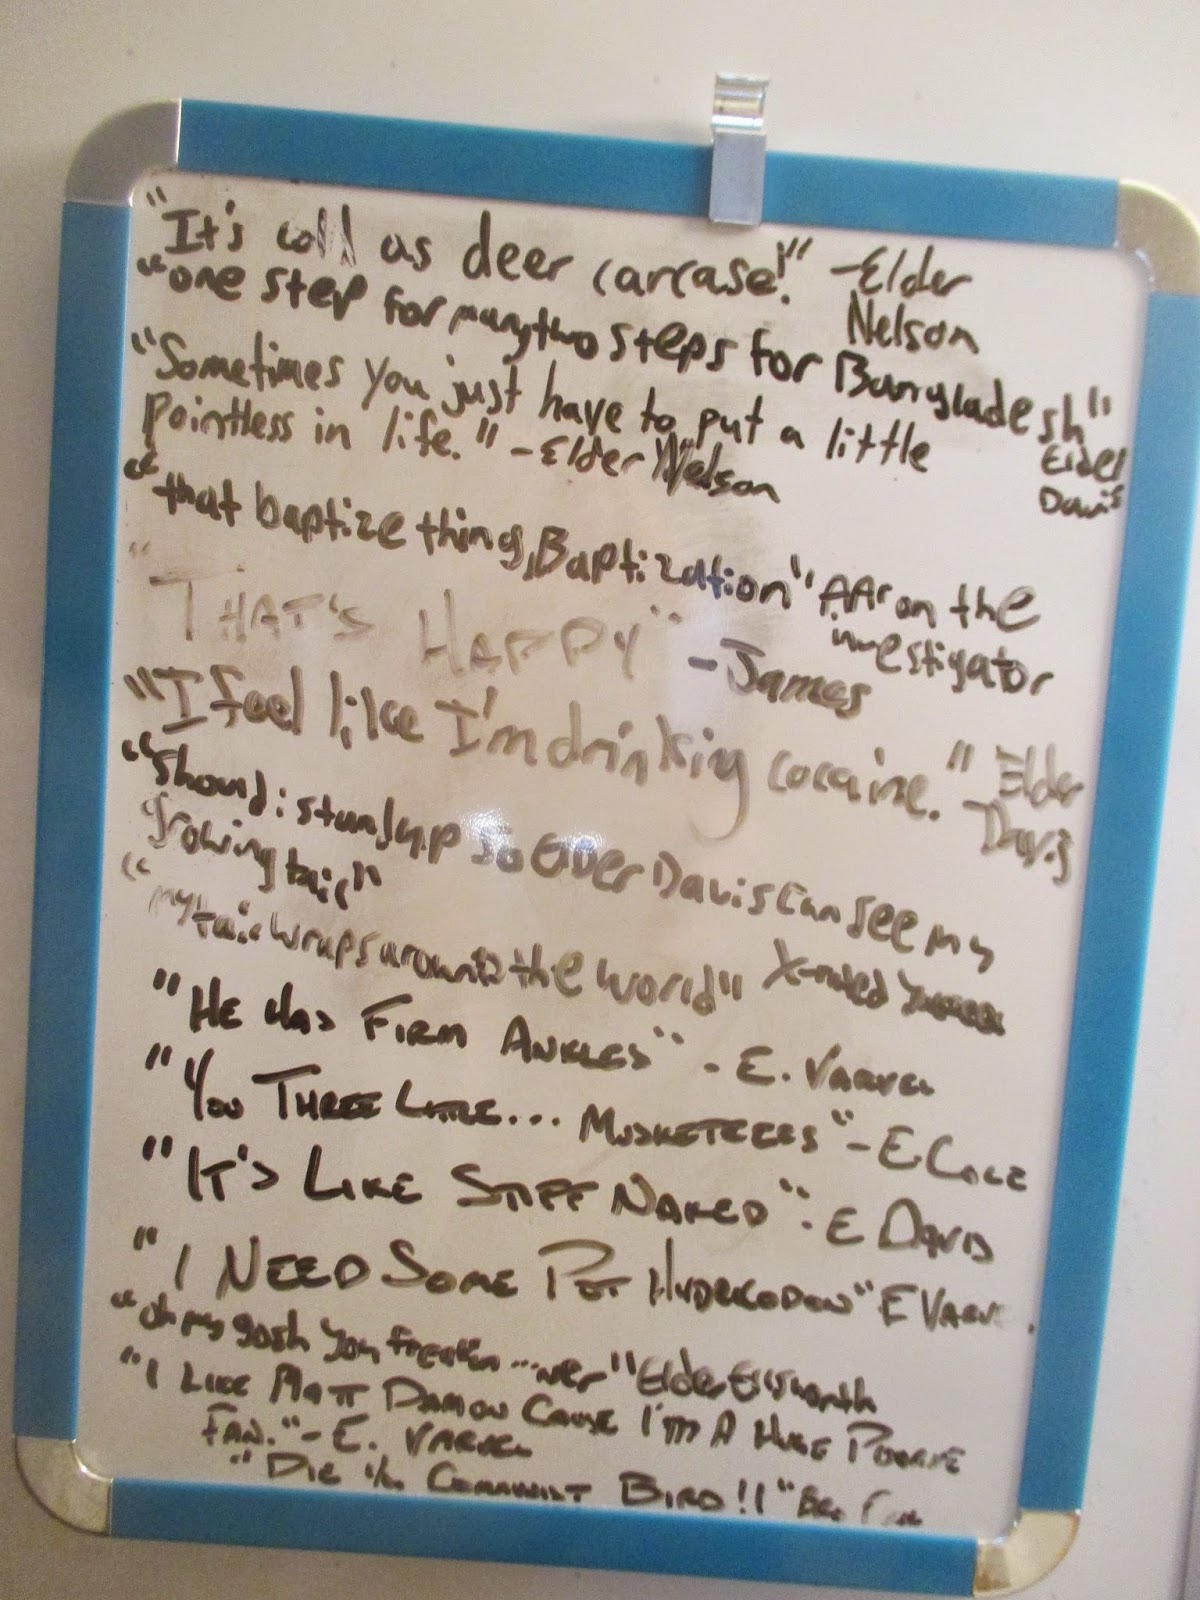 "It's cold as deer carcase!" -Elder Nelson
"one step for many two steps for Bangladesh" Elder Davis
"Sometimes you just have to put a little
pointless in life." -Elder Nelson
"that baptize thing, Baptization" AAron the investigator
"THAT'S HAPPY" -James
"I feel like I'm drinking cocaine." -Elder Davis
"should i stand up so Elder Davis can see my
growing tail"
"my tail wraps around the world"
"HE HAS FIRM ANKLES" - E. VARVEL
"YOU THREE LITTLE... MUSKETEERS" - E. COLE
"IT'S LIKE STIFF NAKED" - E DAVIS
"I NEED SOME PET" E VARVEL
"oh my gosh you freakin ... ner" Elder Ellsworth
"I LIKE MATT DAMON CAUSE I'M A HUGE
FAN." - E. VARVEL
"DIE COMMUNIST BIRD!!" BRO